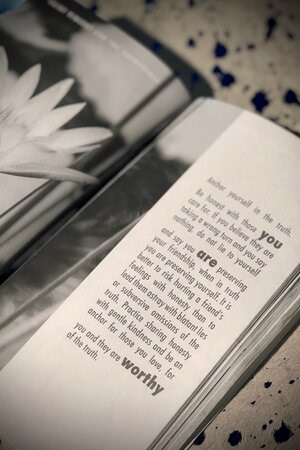 Anchor yourself in the truth.
Be honest with those you
care for. If you believe they are
taking a wrong turn and you say
nothing, do not lie to yourself
and say you are preserving
your friendship, when in truth
you are preserving yourself. It is
better to risk hurting a friend's
feelings with honesty than to
lead them astray with blatant lies
or subversive omissions of the
truth. Practice sharing honesty
with gentle kindness and be an
anchor for those you love, for
you and they are worthy
of the truth.